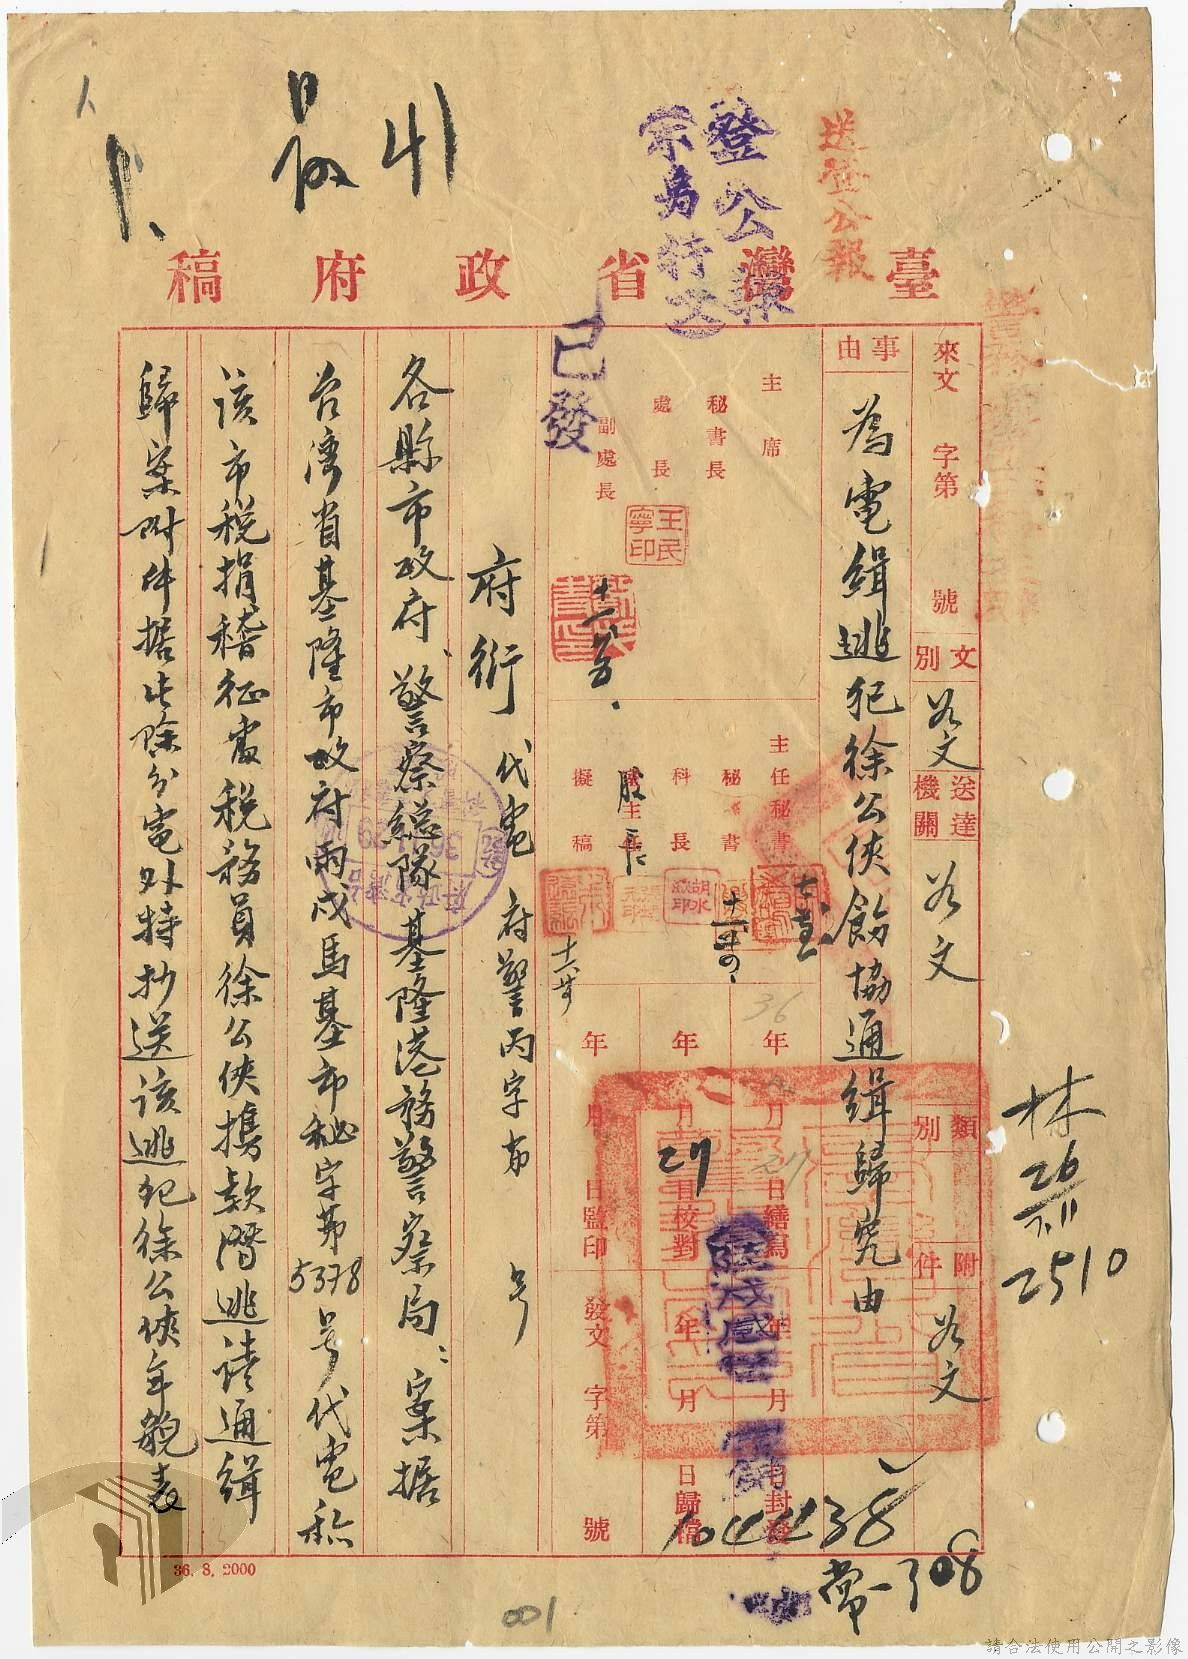 送登公報
登公報
不另行文
臺灣省政府稿
來文 字第 號
文別 代文
送達機關 代文
類別
附件 代文
事由
為電緝逃犯徐公俠飭協通緝歸究由
主席
秘書長
處長
副處長
王民寧印
主任秘書
秘書
科長
股長
主任
擬稿
36年 月27日繕寫 年 月 日封發
年 月27日校對 年 月 日歸檔
年 月 日監印 發文 字第 號
已發
府銜 代電 府警丙字第 号
各縣市政府、警察總隊、基隆港務警察局、案據
台灣省基隆市政府兩戌馬基市秘字第5378号代電稱
該市稅捐稽征處稅務員徐公俠攜款潛逃請通緝
歸案附件據此除分電外特抄送該逃犯徐公俠年貌表
林
26/11
2510
104438
常-308
36. 8. 2000
001
請合法使用公開之影像